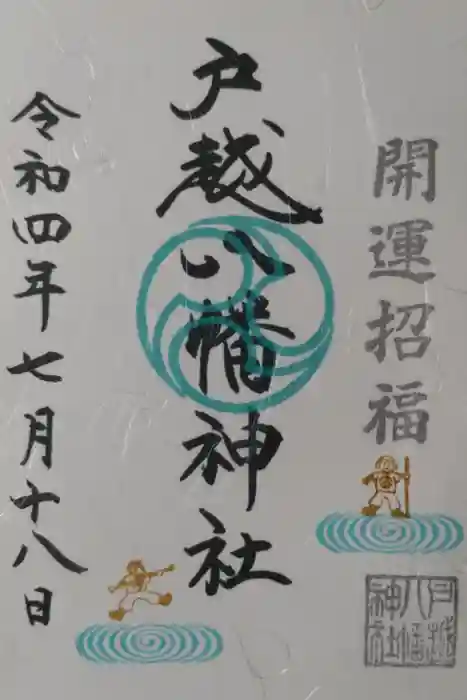 開運招福
戸越八幡神社
令和四年七月十八日
戸越
八幡
神社